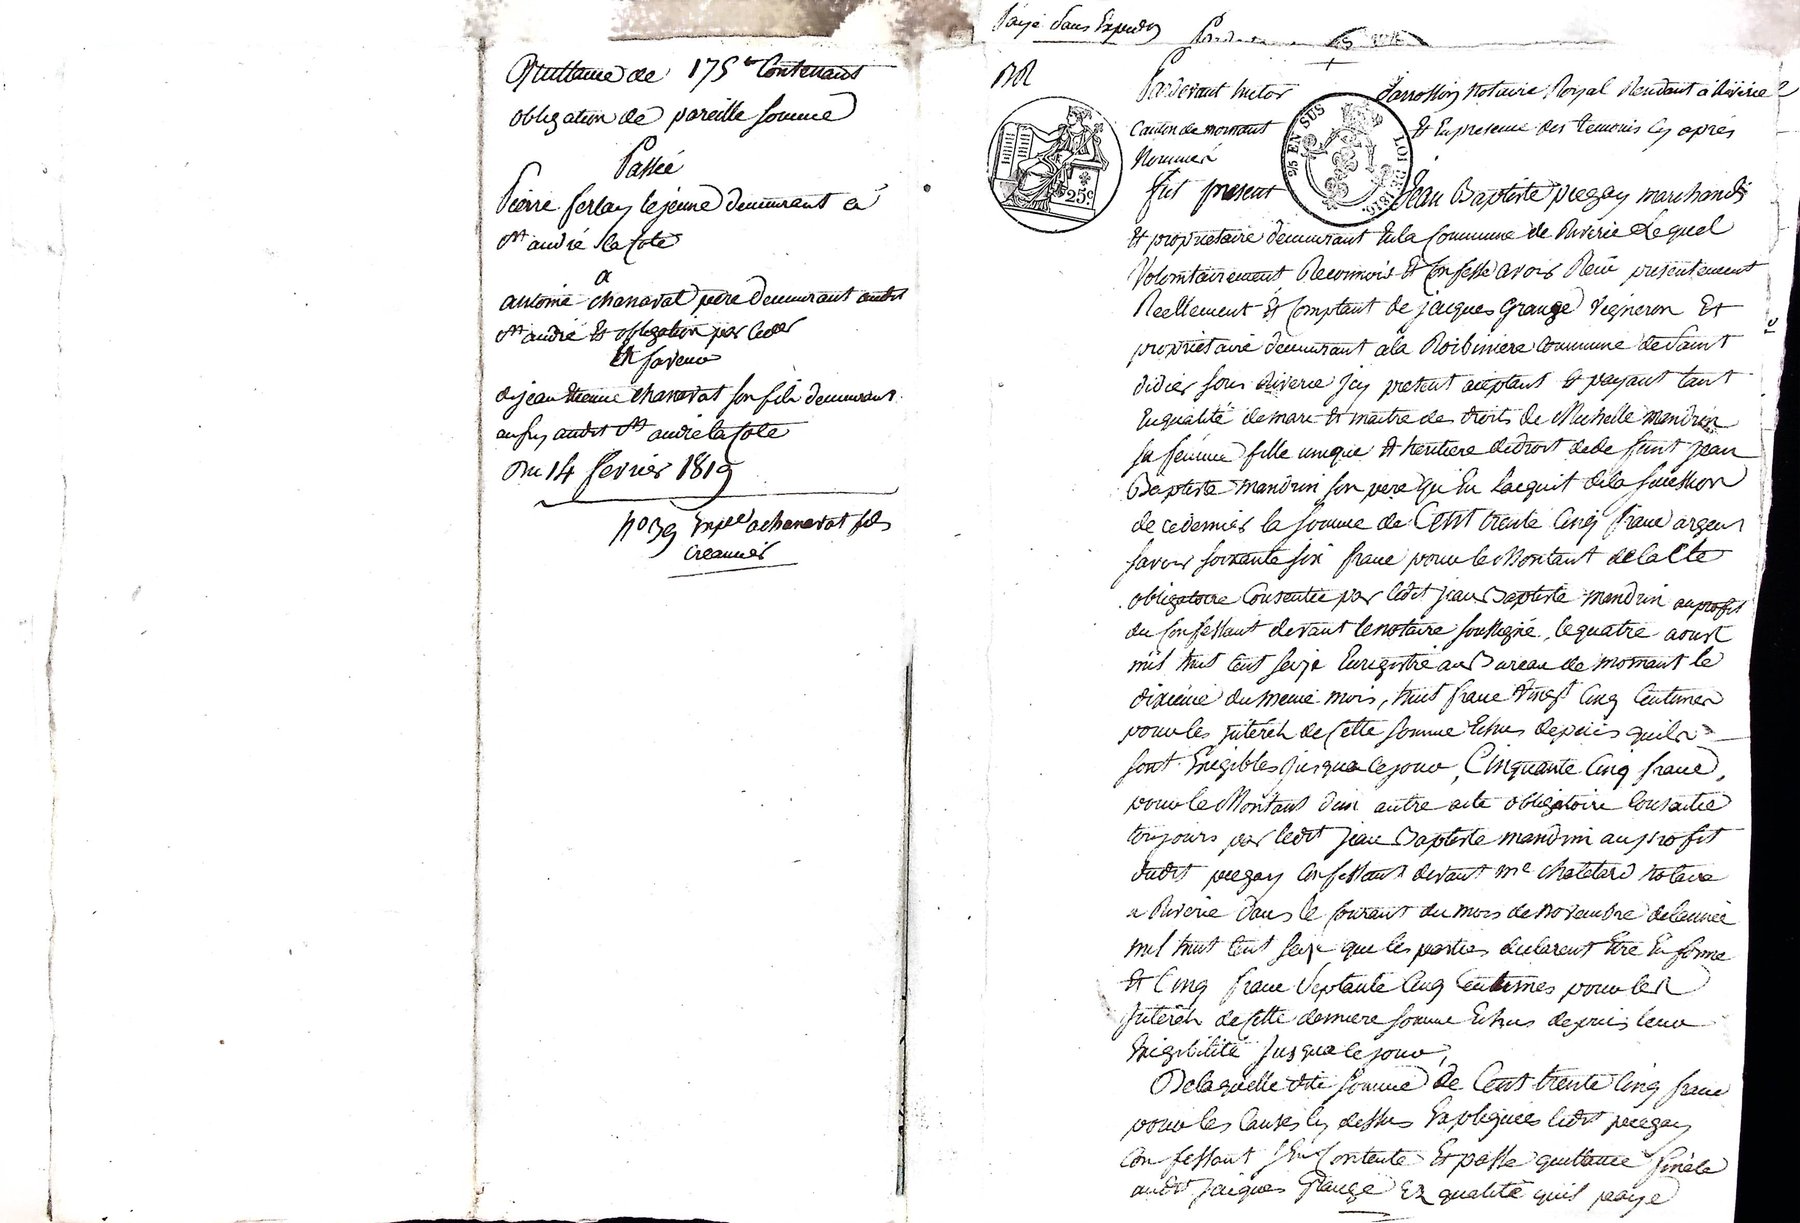 Quittance de 175 fr Contenant
obligation de pareille somme
Passée
Pierre ferlay lejeune demeurant a
St andré la Cote
a
antoine chanavat pere demeurant audit
St andré Et obligation par
En faveur
de jean Etienne chanavat son fils demeurant
aussy audit St andré la Cote
Du 14 fevrier 1819
No 39 Exp a chanavat fils
Creancier
Payé sans
Pardevant victor Jarrosson Notaire Royal Residant a Riverie
Canton de mornant Et En presence des temoins cy aprés
Nommés
25 EN SUS
LOI DE 1816
25c
fut present Jean Baptiste piegay marchand
Et proprietaire demeurant En la Commune de Riverie Lequel
Volontairement Reconnois Et Confesse avoir Recu presentement
Reellement Et Comptant de jacques Grange vigneron Et
proprietaire demeurant a la Roibiniere commune de Saint
didier sous Riverie Jcy present aceptant Et payant tant
En qualité de mari Et maitre des droits de Michelle mandrin
sa femme fille unique Et heritiere de droit de defunt Jean
Baptiste mandrin son pere qu En Lacquit de la succession
de ce dernier la somme de Cent trente Cinq franc argent
savoir soixante six franc pour le Montant de lacte
obligatoire Consentie par ledit jean Baptiste mandrin au profit
du Confessant devant le notaire soussigné, le quatre aoust
mil huit cent seize Enregistré au Bureau de mornant le
dixieme du meme mois, huit franc Vingt Cinq Centimes
pour les jnteréts de Cette somme Echus depuis quils
sont Exigibles jusqua ce jour, Cinquante Cinq franc,
pour le Montant dun autre acte obligatoire Consentie
toujours par ledit jean Baptiste mandrin au profit
dudit piegay Confessant devant me chatelard notaire
a Riverie dans le Courant du mois de novembre de lannée
mil huit Cent seize que les parties declarent Etre En forme
Et Cinq franc Septante Cinq Centimes pour les
Jnteréts de Cette derniere somme Echus depuis leur
Exigibilité Jusqua ce jour,
De laquelle dite somme de Cent trente Cinq franc
pour les Causes cy dessus Expliquées ledit piegay
Confessant sen Contente Et passe quittance finale
audit Jacques Grange En qualité quil paye